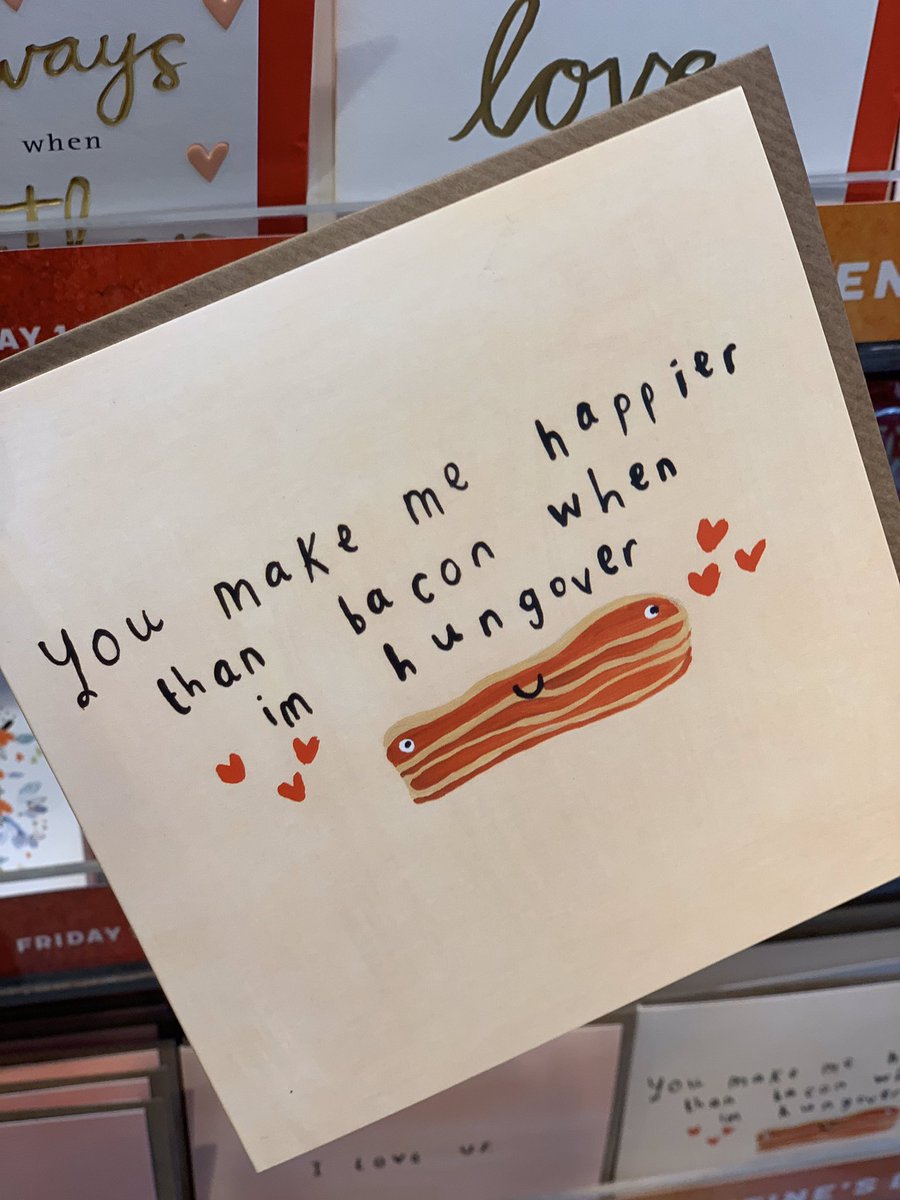 when
love
You make me happier
than bacon when
im hungover
FRIDAY
I LOVE
You make me
than bacon
im hungover